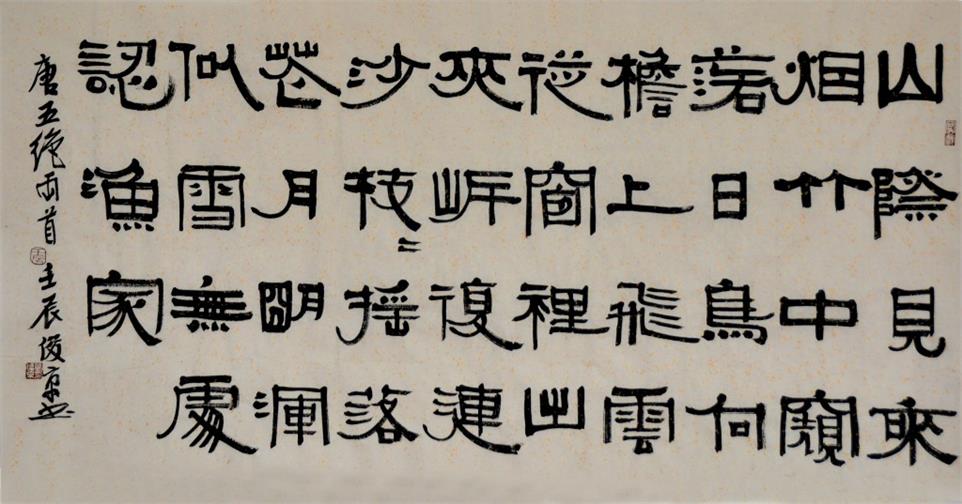 山際見來
烟竹中窺
落日鳥向
檐上飛雲
從窗裡出
夾岸復連
沙枝〻搖落
花月明渾
似雪無處
認漁家
唐五绝兩首 壬辰俊京书